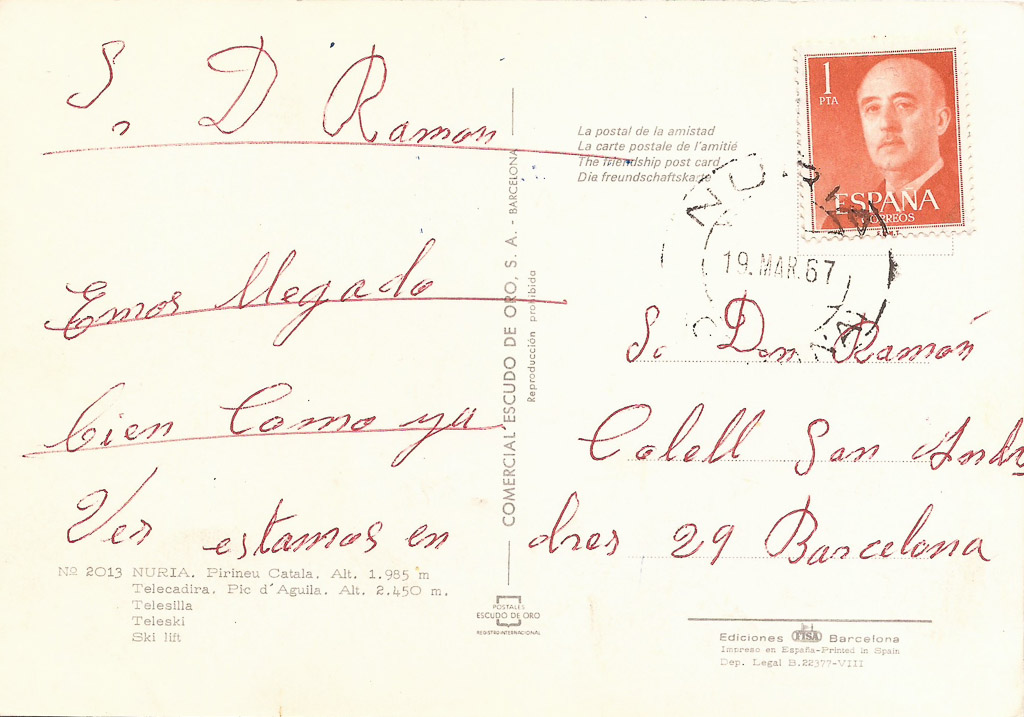 S. D Ramon
Emos llegado
bien Como ya
Ver estamos en
Nº 2013 NURIA. Pirineu Catala. Alt. 1.985 m
Telecadira. Pic d´Aguila. Alt. 2.450 m.
Telesilla
Teleski
Ski lift
COMERCIAL ESCUDO DE ORO, S. A. - BARCELONA
Reproducción prohibida
POSTALES
ESCUDO DE ORO
REGISTRO INTERNACIONAL
La postal de la amistad
La carte postale de l'amitié
The friendship post card
Die freundschaftskarte
1
PTA
ESPAÑA
CORREOS
NURIA
19. MAR. 67
S. Don Ramón
Colell San Andr
dres 29 Barcelona
Ediciones FISA Barcelona
Impreso en España-Printed in Spain
Dep. Legal B.22377-VIII